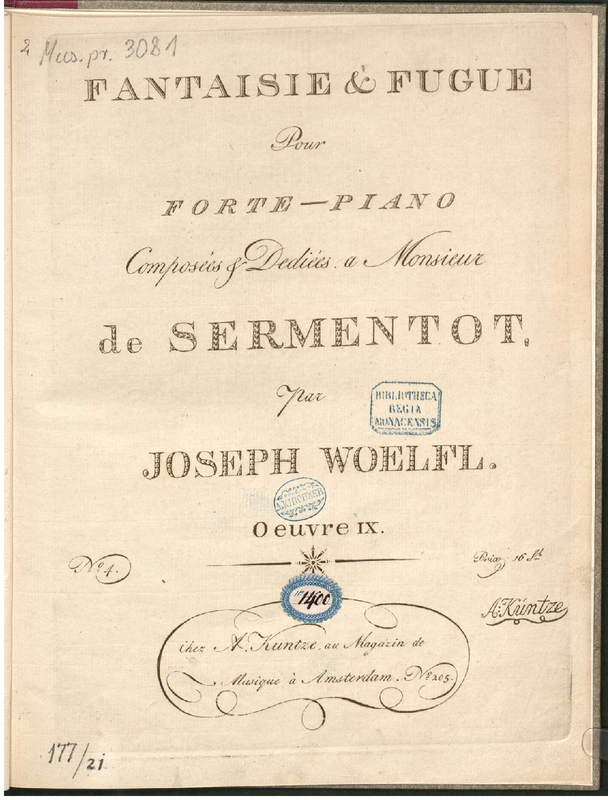 2 Mus.pr. 3081
FANTAISIE & FUGUE
Pour
FORTE-PIANO
Composées & Dediées a Monsieur
de SERMENTOT,
par
BIBLIOTHECA
REGIA
MONACENSIS.
JOSEPH WOELFL.
Oeuvre IX.
No. 4.
Prix 16 St
1400
A. Kuntze
chez A. Kuntze, au Magazin de
Musique à Amsterdam. No 205.
177/21